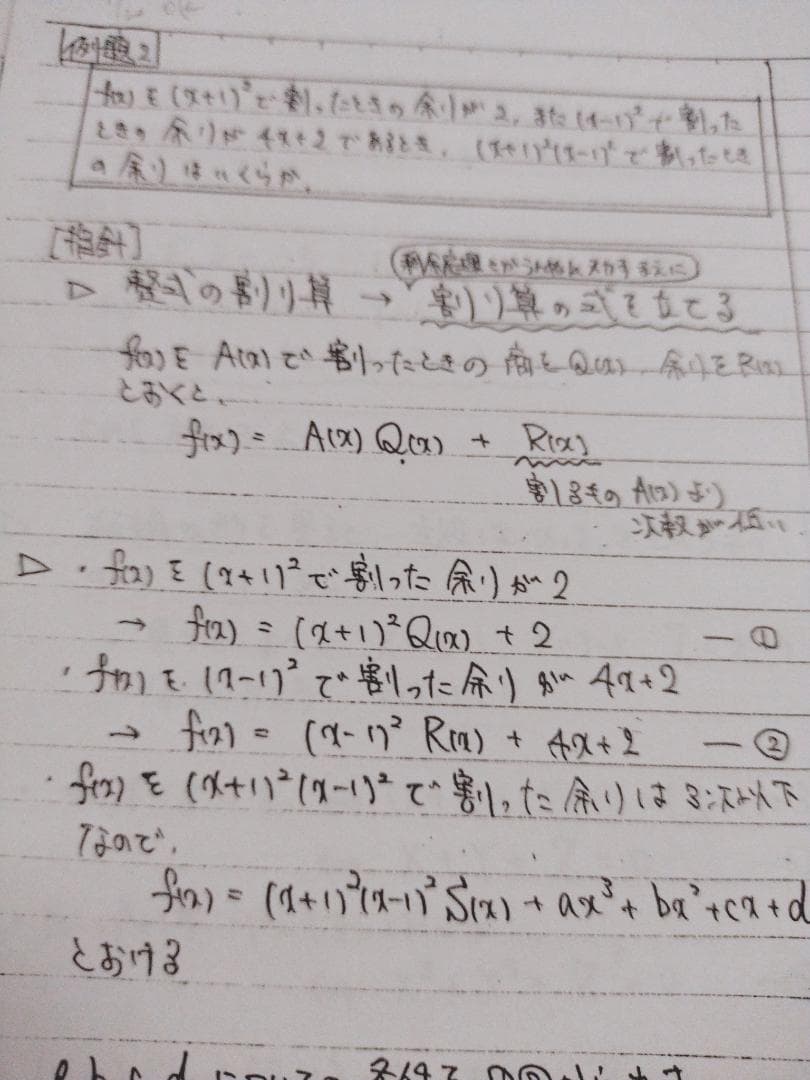 例題2
f(x)を(x+1)²で割ったときの余りが2, また(x-1)²で割った
ときの余りが4x+2であるとき、(x+1)²(x-1)²で割ったとき
の余りはいくらか。
[指針]
▷ 整式の割り算 → 割り算の式を立てる
f(x)をA(x)で割ったときの商をQ(x)、余りをR(x)
とおくと、
f(x) = A(x) Q(x) + R(x)
割るもの A(x)より
次数が低い
▷ ・f(x)を(x+1)²で割った余りが2
→ f(x) = (x+1)²Q(x) + 2 ー①
・f(x)を(x-1)²で割った余りが4x+2
→ f(x) = (x-1)² R(x) + 4x+2 ー②
・f(x)を(x+1)²(x-1)²で割った余りは3次以下
なので、
f(x) = (x+1)²(x-1)² S(x) + ax³ + bx² + cx + d
とおける